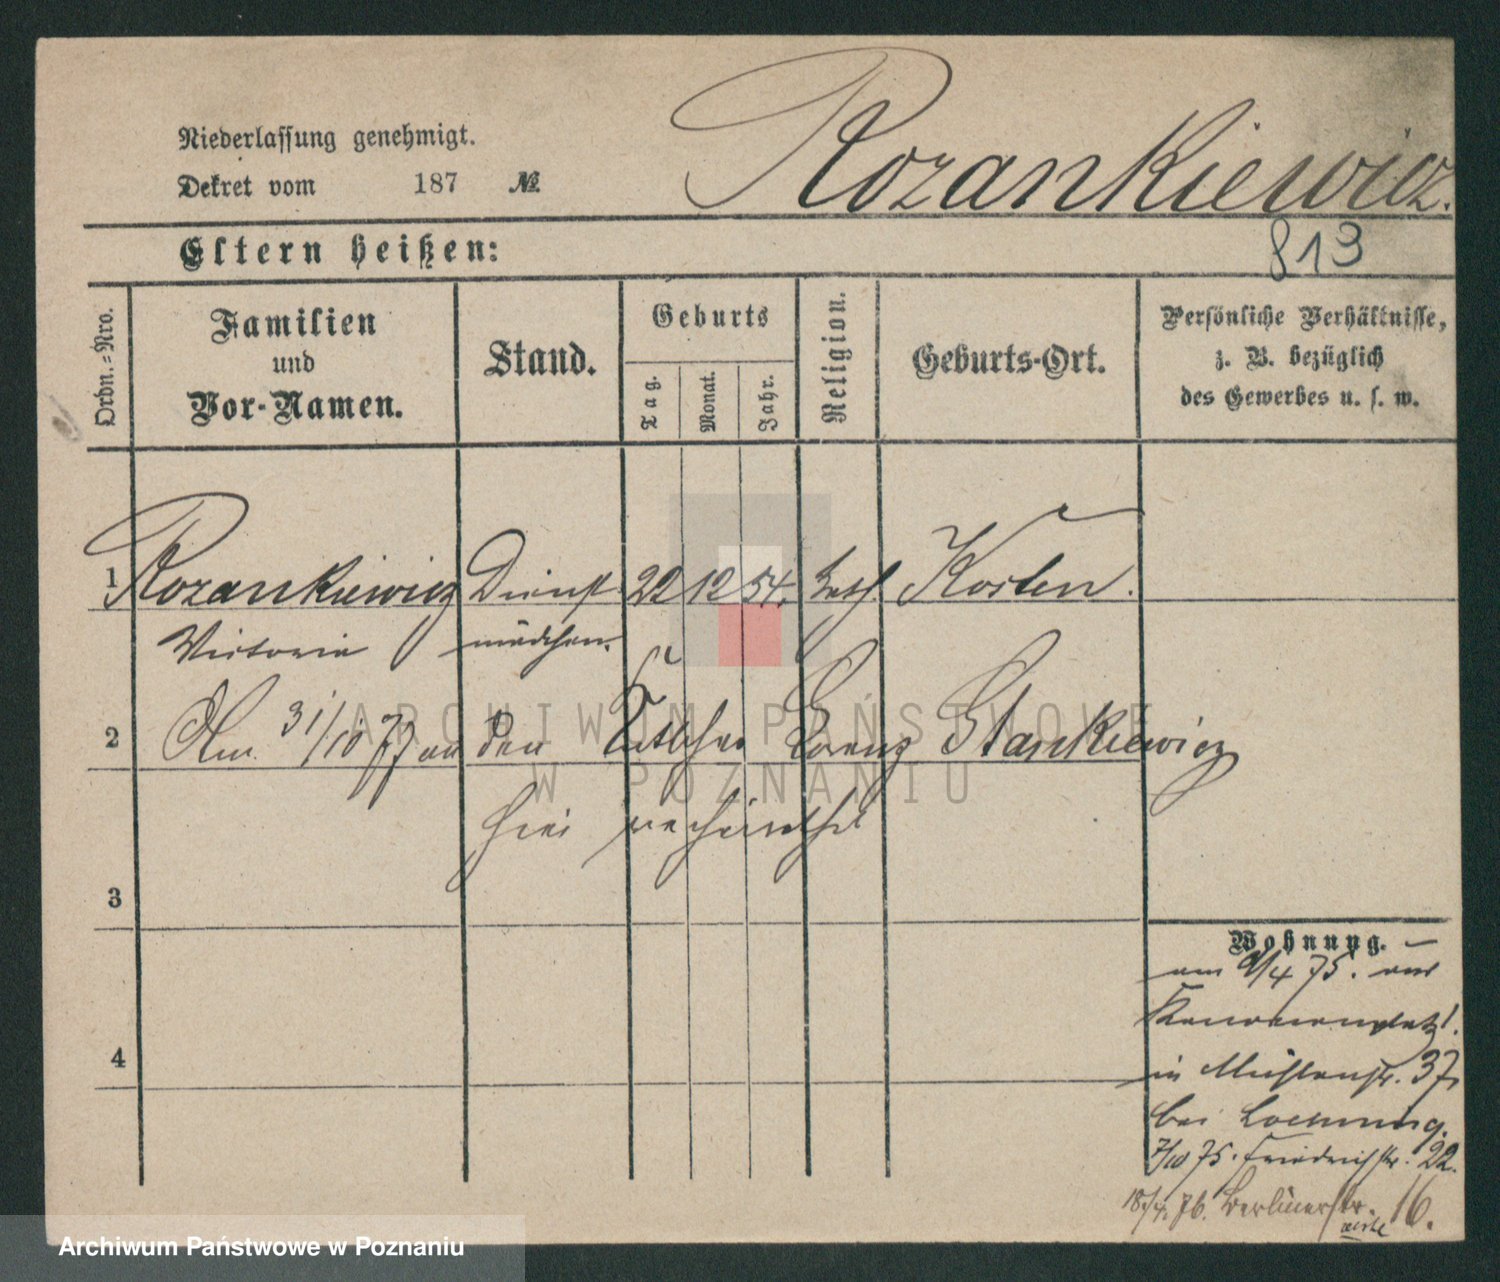 Niederlassung genehmigt.
Dekret vom 187 №
Rozankiewicz.
Eltern heißen:
813
Ordn.-Nro.
Familien und Vor-Namen.
Stand.
Geburts
Tag.
Monat.
Jahr.
Religion.
Geburts-Ort.
Persönliche Verhältnisse,
z. B. bezüglich
des Gewerbes u. s. w.
1 Rozankiewicz Dienst 22 12 54. kath Kosten.
Victoria mädchen.
2 Am 31/10 77 an den Tischler Lorenz Stankiewicz
hier verheirathet
3
Wohnung.
am 9/4 75. aus
Kanonenplatz 1.
4
in Mühlenstr. 37,
bei
7/10 75. Friedrichstr. 22.
18/4. 76. Berlinerstr. 16.
ARCHIWUM PAŃSTWOWE
W POZNANIU
Archiwum Państwowe w Poznaniu